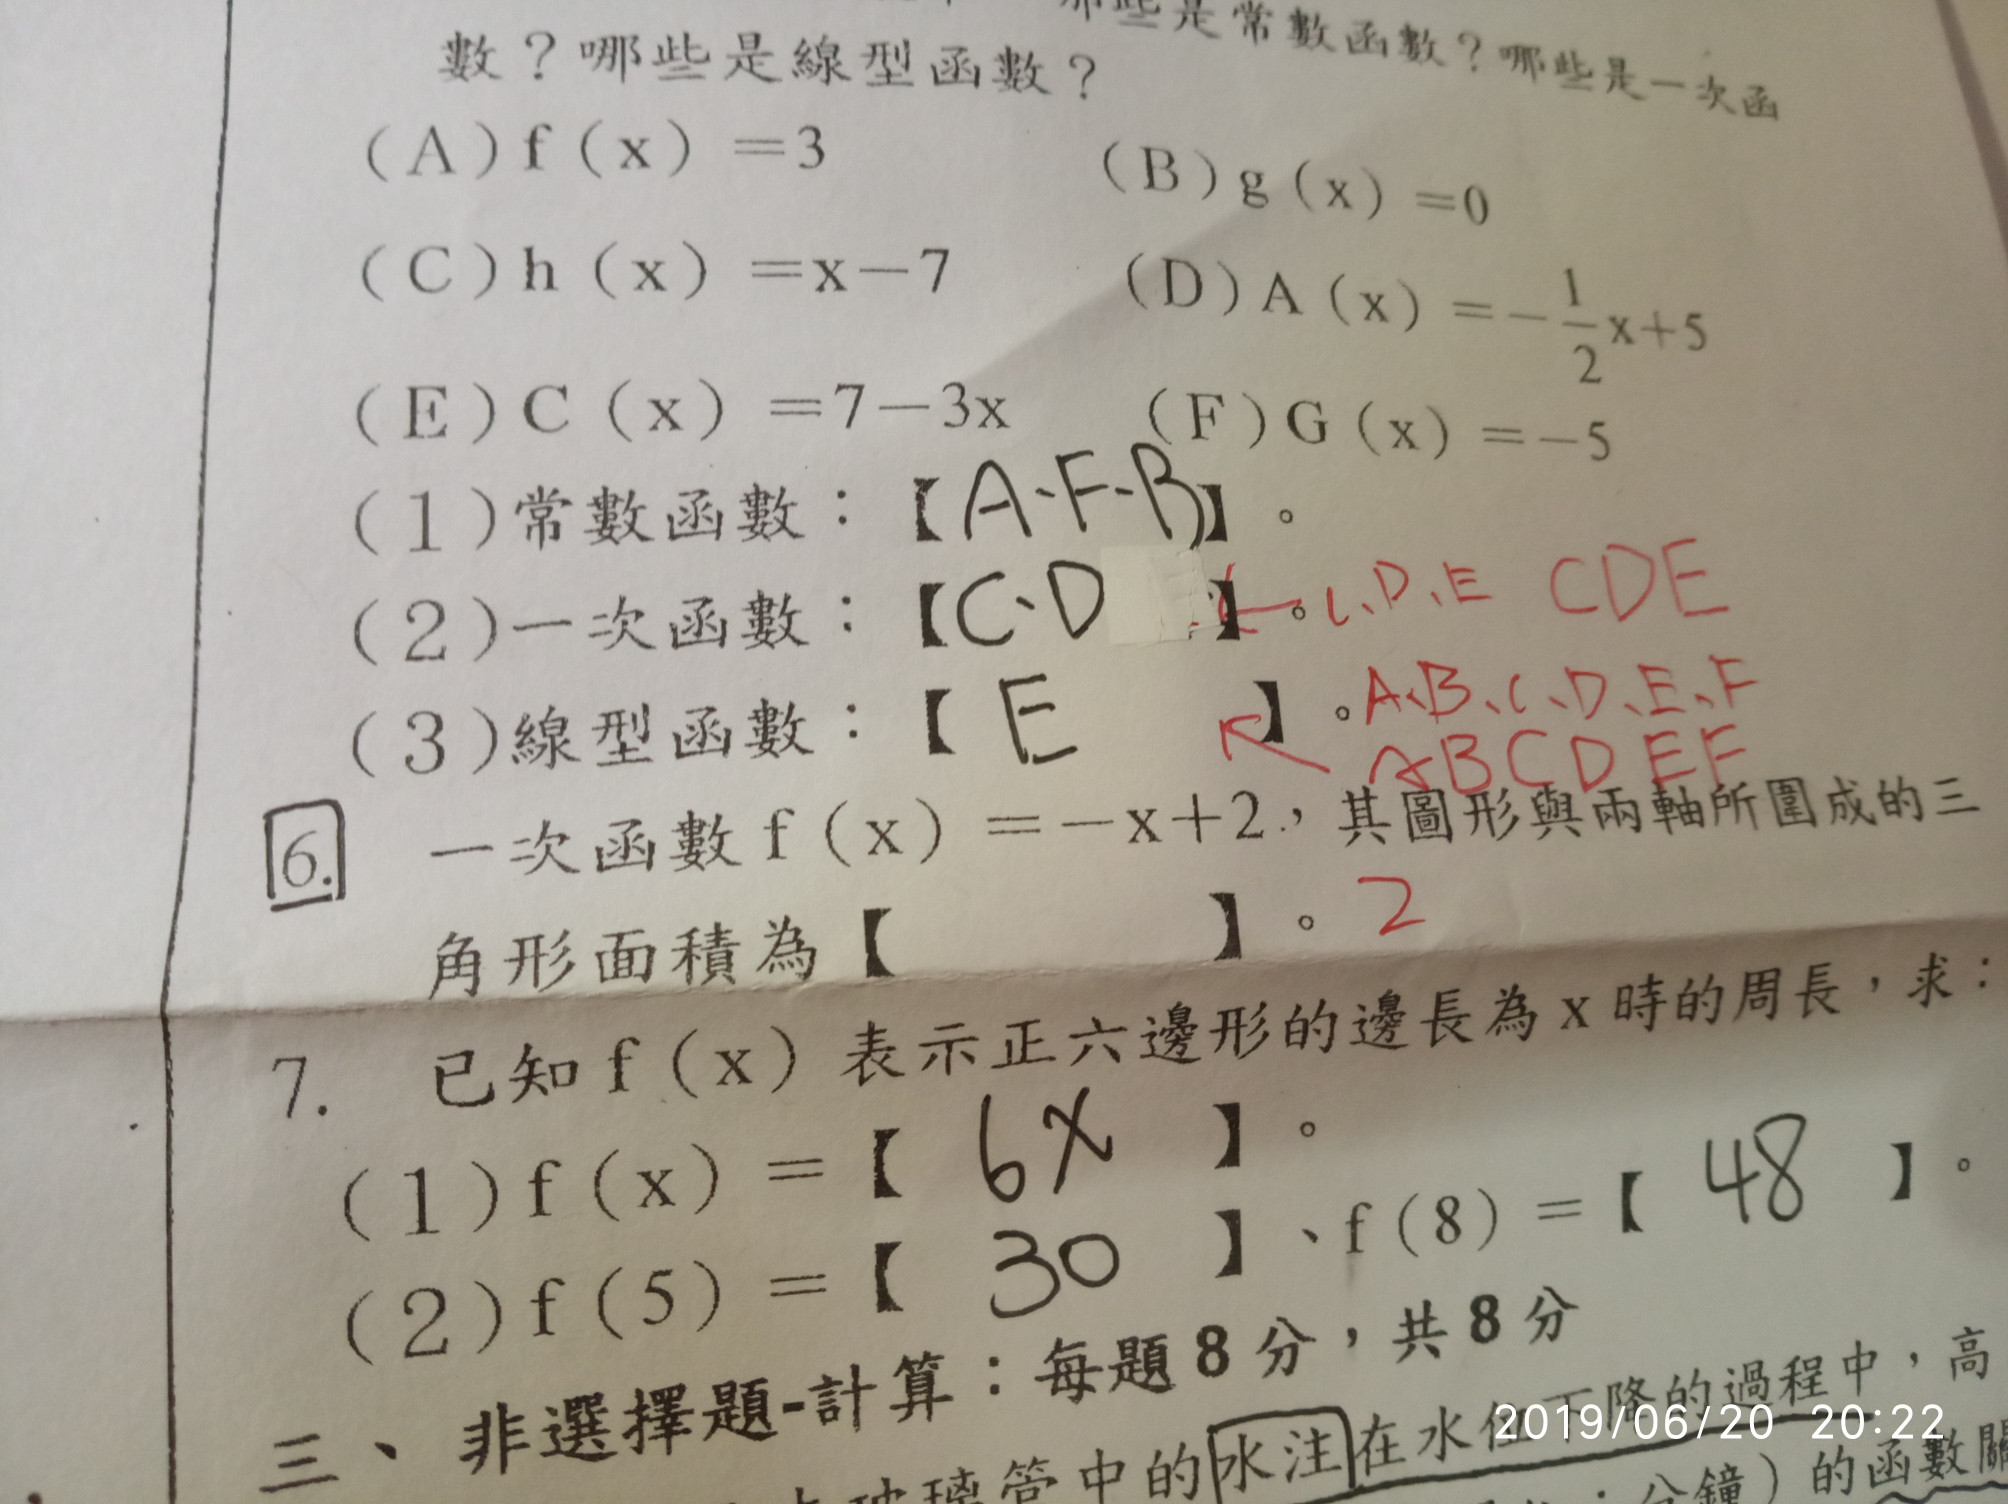 些是常數函數？哪些是一次函
數？哪些是線型函數？
(A) f (x) =3
(B) g (x) =0
(C) h (x) =x-7
(D) A (x) =-1/2x+5
(E) C (x) =7-3x
(F) G (x) =-5
(1)常數函數：【A、F、B】。
(2)一次函數：【C、D】。C、D、E CDE
(3)線型函數：【E】。A、B、C、D、E、F
ABCDEF
6. 一次函數 f (x) =-x+2，其圖形與兩軸所圍成的三
角形面積為【 】。2
7. 已知 f (x) 表示正六邊形的邊長為 x 時的周長，求：
(1) f (x) =【6x】。
(2) f (5) =【30】、f (8) =【48】。
三、非選擇題-計算：每題8分，共8分
玻璃管中的水注在水位下降的過程中，高
分鐘）的函數關
2019/06/20 20:22